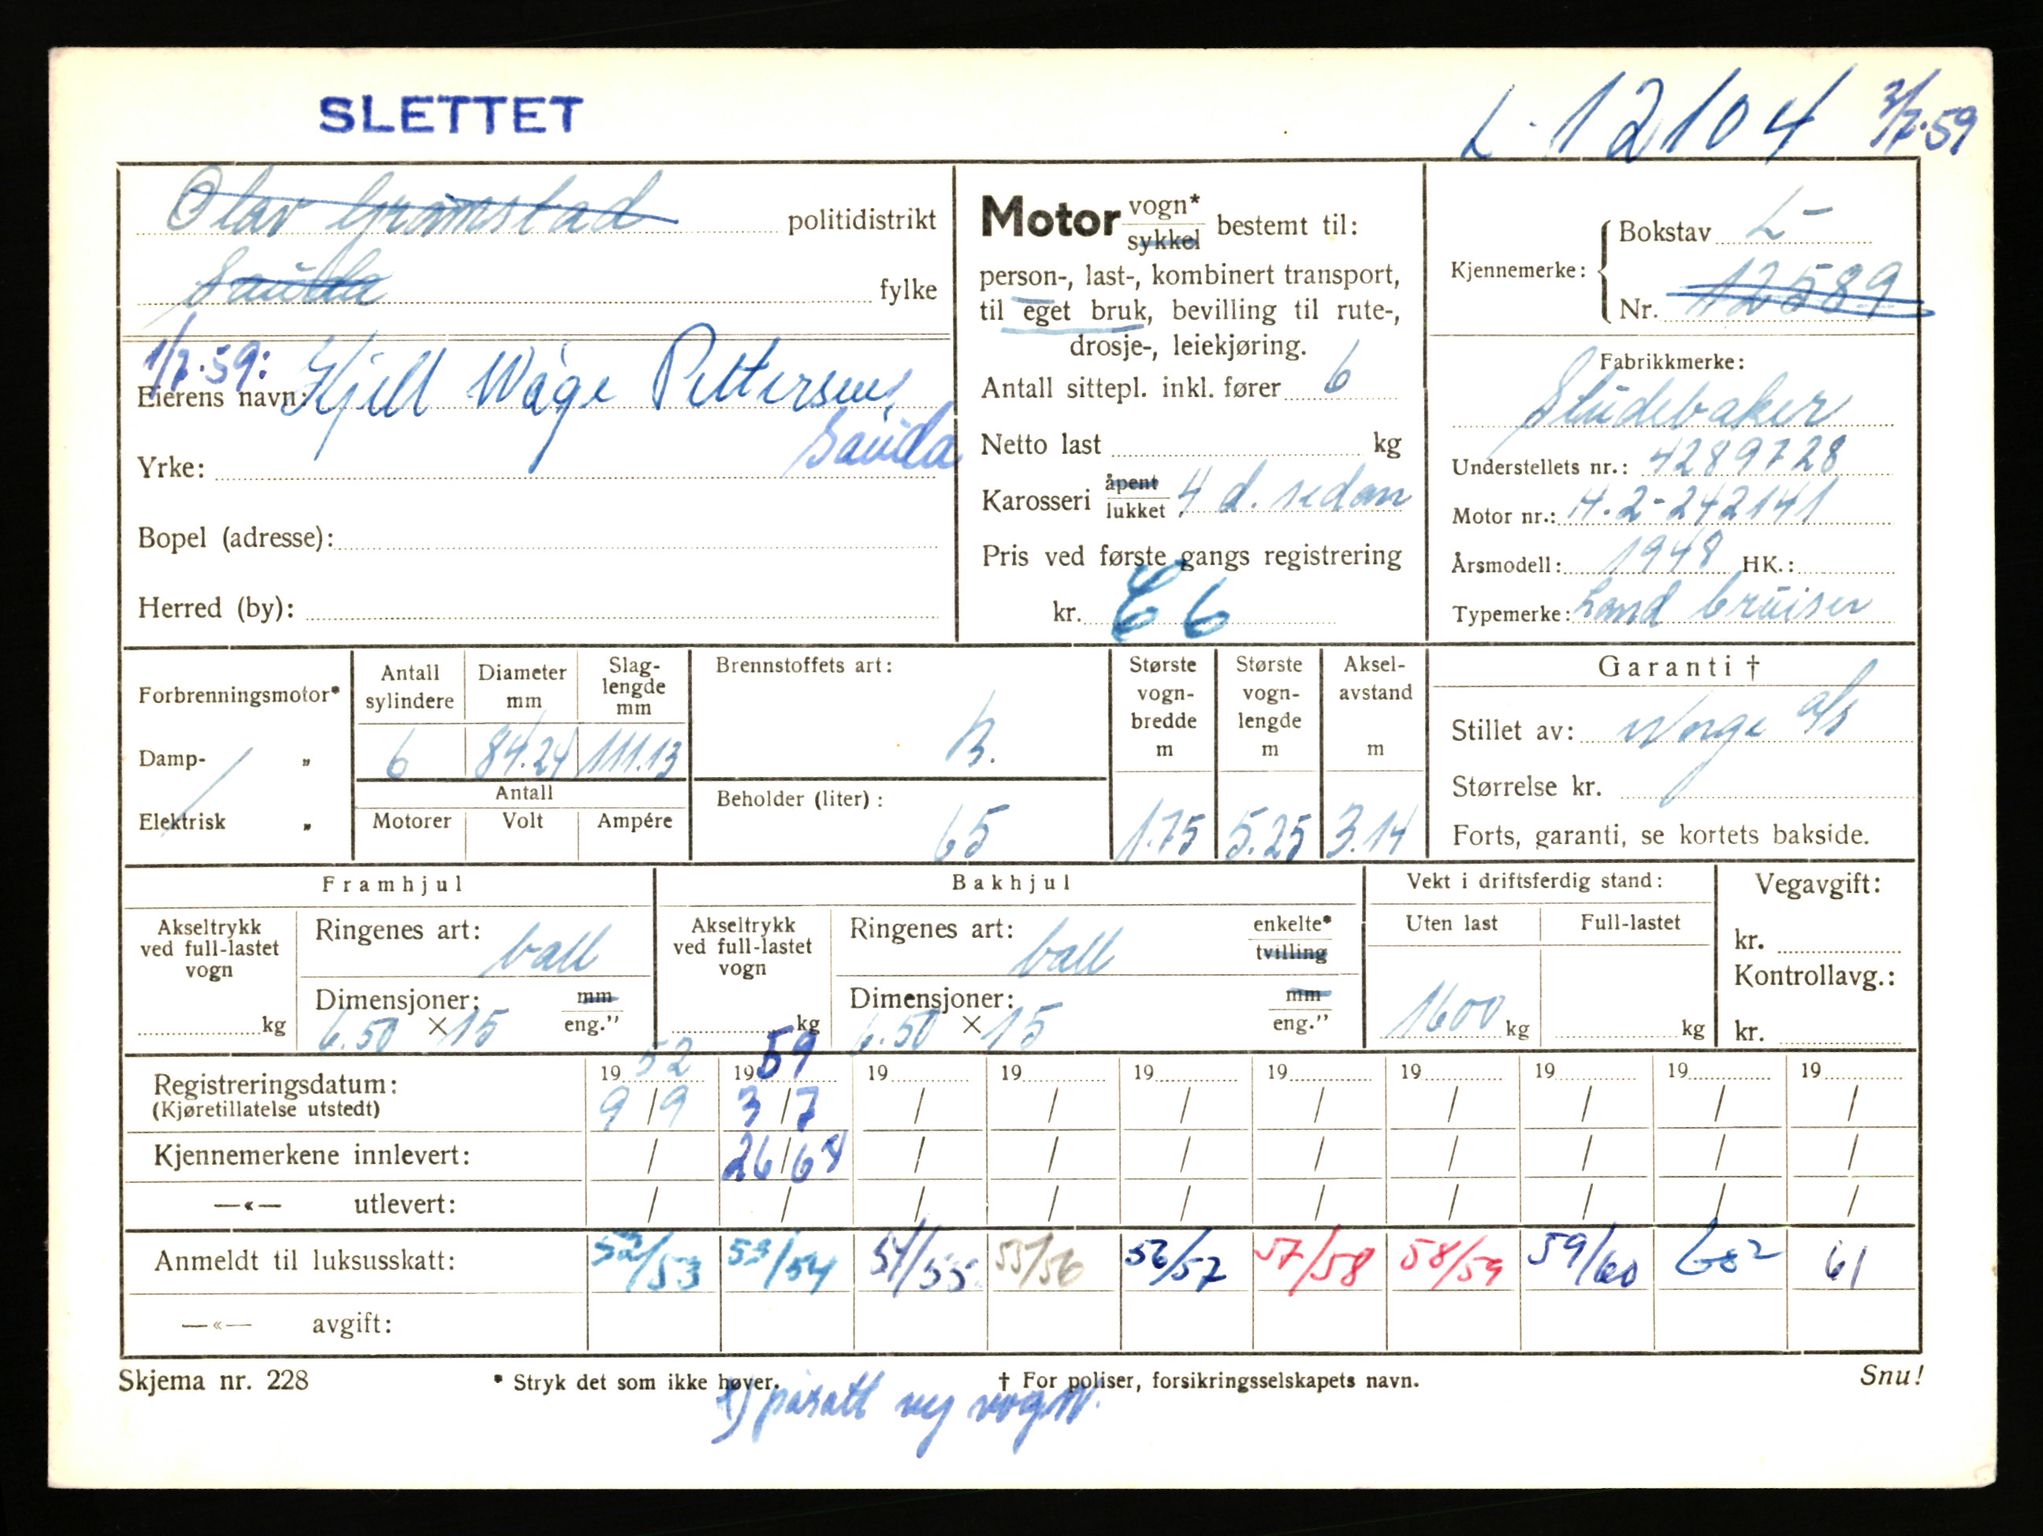 SLETTET
L-12104 3/7.59
Olav Grømstad politidistrikt
Sauda fylke
1/7.59:
Eierens navn: Kjell Wåge Pettersen,
Sauda
Yrke:
Bopel (adresse):
Herred (by):
Motor vogn* sykkel bestemt til:
person-, last-, kombinert transport,
til eget bruk, bevilling til rute-,
drosje-, leiekjøring.
Antall sittepl. inkl. fører 6
Netto last kg
Karosseri åpent lukket 4 d. sedan
Pris ved første gangs registrering
kr. 66
Kjennemerke: Bokstav L-
Nr. 12589
Fabrikkmerke:
Studebaker
Understellets nr.: 4289728
Motor nr.: H.2-242141
Årsmodell: 1948 HK.:
Typemerke: Land Cruiser
Forbrenningsmotor*
Damp- „
Elektrisk „
Antall sylindere 6
Diameter mm 84.24
Slag-lengde mm 111.13
Antall
Motorer Volt Ampére
Brennstoffets art: b.
Beholder (liter): 65
Største vogn-bredde m 1.75
Største vogn-lengde m 5.25
Aksel-avstand m 3.14
Garanti †
Stillet av: Norge a/s
Størrelse kr.
Forts, garanti, se kortets bakside.
Framhjul
Akseltrykk ved full-lastet vogn kg
Ringenes art: ball
Dimensjoner: mm
6.50 × 15 eng."
Bakhjul
Akseltrykk ved full-lastet vogn kg
Ringenes art: ball enkelte* tvilling
Dimensjoner: mm
6.50 × 15 eng."
Vekt i driftsferdig stand:
Uten last Full-lastet
1600 kg kg
Vegavgift:
kr.
Kontrollavg.:
kr.
19 52 19 59 19 19 19 19 19 19 19 19
Registreringsdatum: 9/9 3/7 / / / / / / / /
(Kjøretillatelse utstedt)
Kjennemerkene innlevert: / 26/64 / / / / / / / /
—«— utlevert: / / / / / / / / / /
Anmeldt til luksusskatt: 52/53 53/54 54/55 55/56 56/57 57/58 58/59 59/60 61
—«— avgift:
Skjema nr. 228
* Stryk det som ikke høver.
† For poliser, forsikringsselskapets navn.
Snu!
x) påsatt ny vogn.